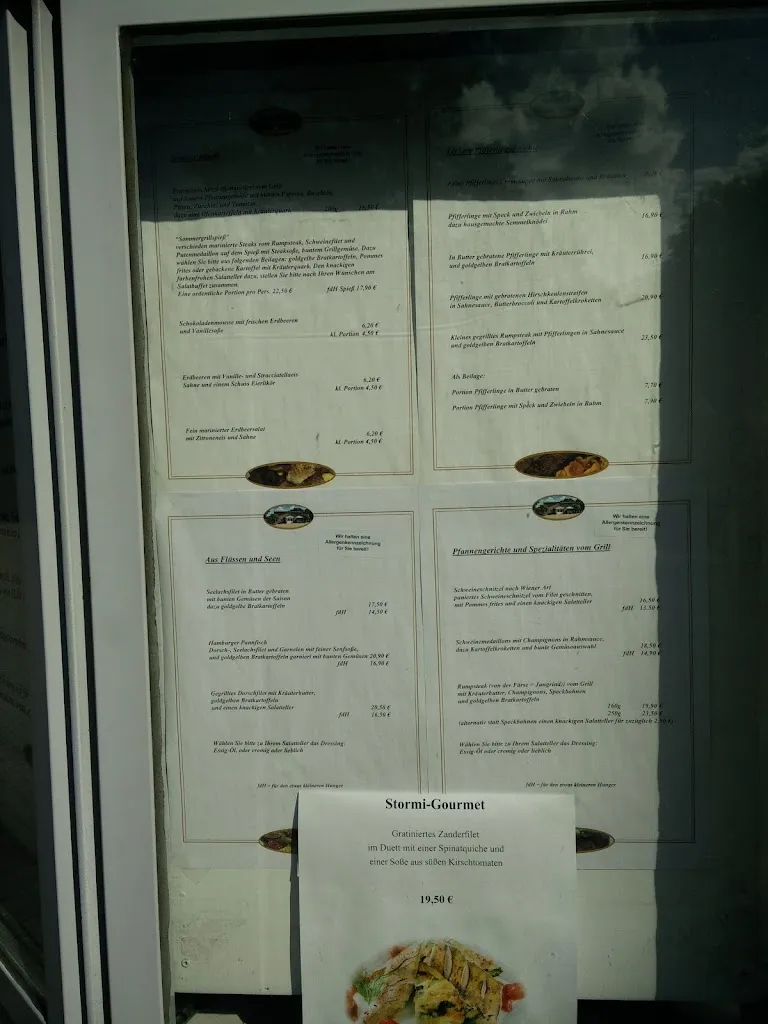 "Sommergrillspieß"
verschieden marinierte Steaks vom Rumpsteak, Schweinefilet und
Putenmedaillon auf dem Spieß mit Steaksoße, buntem Grillgemüse. Dazu
wählen Sie bitte aus folgenden Beilagen: goldgelbe Bratkartoffeln, Pommes
frites oder gebackene Kartoffel mit Kräuterquark. Den knackigen
farbenfrohen Salatteller dazu, stellen Sie bitte nach Ihren Wünschen am
Salatbuffet zusammen.
Eine ordentliche Portion pro Pers. 22,50 € fdH Spieß 17,90 €
Schokoladenmousse mit frischen Erdbeeren
und Vanillesoße 6,20 €
kl. Portion 4,50 €
Erdbeeren mit Vanille- und Stracciatellaeis
Sahne und einem Schuss Eierlikör 6,20 €
kl. Portion 4,50 €
Fein marinierter Erdbeersalat
mit Zitroneneis und Sahne 6,20 €
kl. Portion 4,50 €
Pfifferlinge mit Speck und Zwiebeln in Rahm 16,90 €
dazu hausgemachte Semmelknödel
In Butter gebratene Pfifferlinge mit Kräuterrührei, 16,90 €
und goldgelben Bratkartoffeln
Pfifferlinge mit gebratenen Hirschkeulenstreifen 20,90 €
in Sahnesauce, Butterbroccoli und Kartoffelkroketten
Kleines gegrilltes Rumpsteak mit Pfifferlingen in Sahnesauce 23,50 €
und goldgelben Bratkartoffeln
Als Beilage:
Portion Pfifferlinge in Butter gebraten 7,70 €
Portion Pfifferlinge mit Speck und Zwiebeln in Rahm 7,90 €
Wir halten eine
Allergenkennzeichnung
für Sie bereit!
Aus Flüssen und Seen
Seelachsfilet in Butter gebraten
mit bunten Gemüsen der Saison
dazu goldgelbe Bratkartoffeln 17,50 €
fdH 14,50 €
Hamburger Pannfisch
Dorsch-, Seelachsfilet und Garnelen mit feiner Senfsoße,
und goldgelben Bratkartoffeln garniert mit bunten Gemüsen 20,90 €
fdH 16,90 €
Gegrilltes Dorschfilet mit Kräuterbutter,
goldgelben Bratkartoffeln
und einen knackigen Salatteller 20,50 €
fdH 16,50 €
Wählen Sie bitte zu Ihrem Salatteller das Dressing:
Essig-Öl oder cremig oder lieblich
fdH = für den etwas kleineren Hunger
Wir halten eine
Allergenkennzeichnung
für Sie bereit!
Pfannengerichte und Spezialitäten vom Grill
Schweineschnitzel nach Wiener Art
paniertes Schweineschnitzel vom Filet geschnitten,
mit Pommes frites und einen knackigen Salatteller 16,50 €
fdH 13,50 €
Schweinemedaillons mit Champignons in Rahmsauce,
dazu Kartoffelkroketten und bunte Gemüseauswahl 18,50 €
fdH 14,90 €
Rumpsteak (von der Färse = Jungrind;) vom Grill
mit Kräuterbutter, Champignons, Speckbohnen
und goldgelben Bratkartoffeln
160g 19,90 €
250g 23,50 €
(alternativ statt Speckbohnen einen knackigen Salatteller für zuzüglich 2,50 €)
Wählen Sie bitte zu Ihrem Salatteller das Dressing:
Essig-Öl oder cremig oder lieblich
fdH = für den etwas kleineren Hunger
Stormi-Gourmet
Gratiniertes Zanderfilet
im Duett mit einer Spinatquiche und
einer Soße aus süßen Kirschtomaten
19,50 €